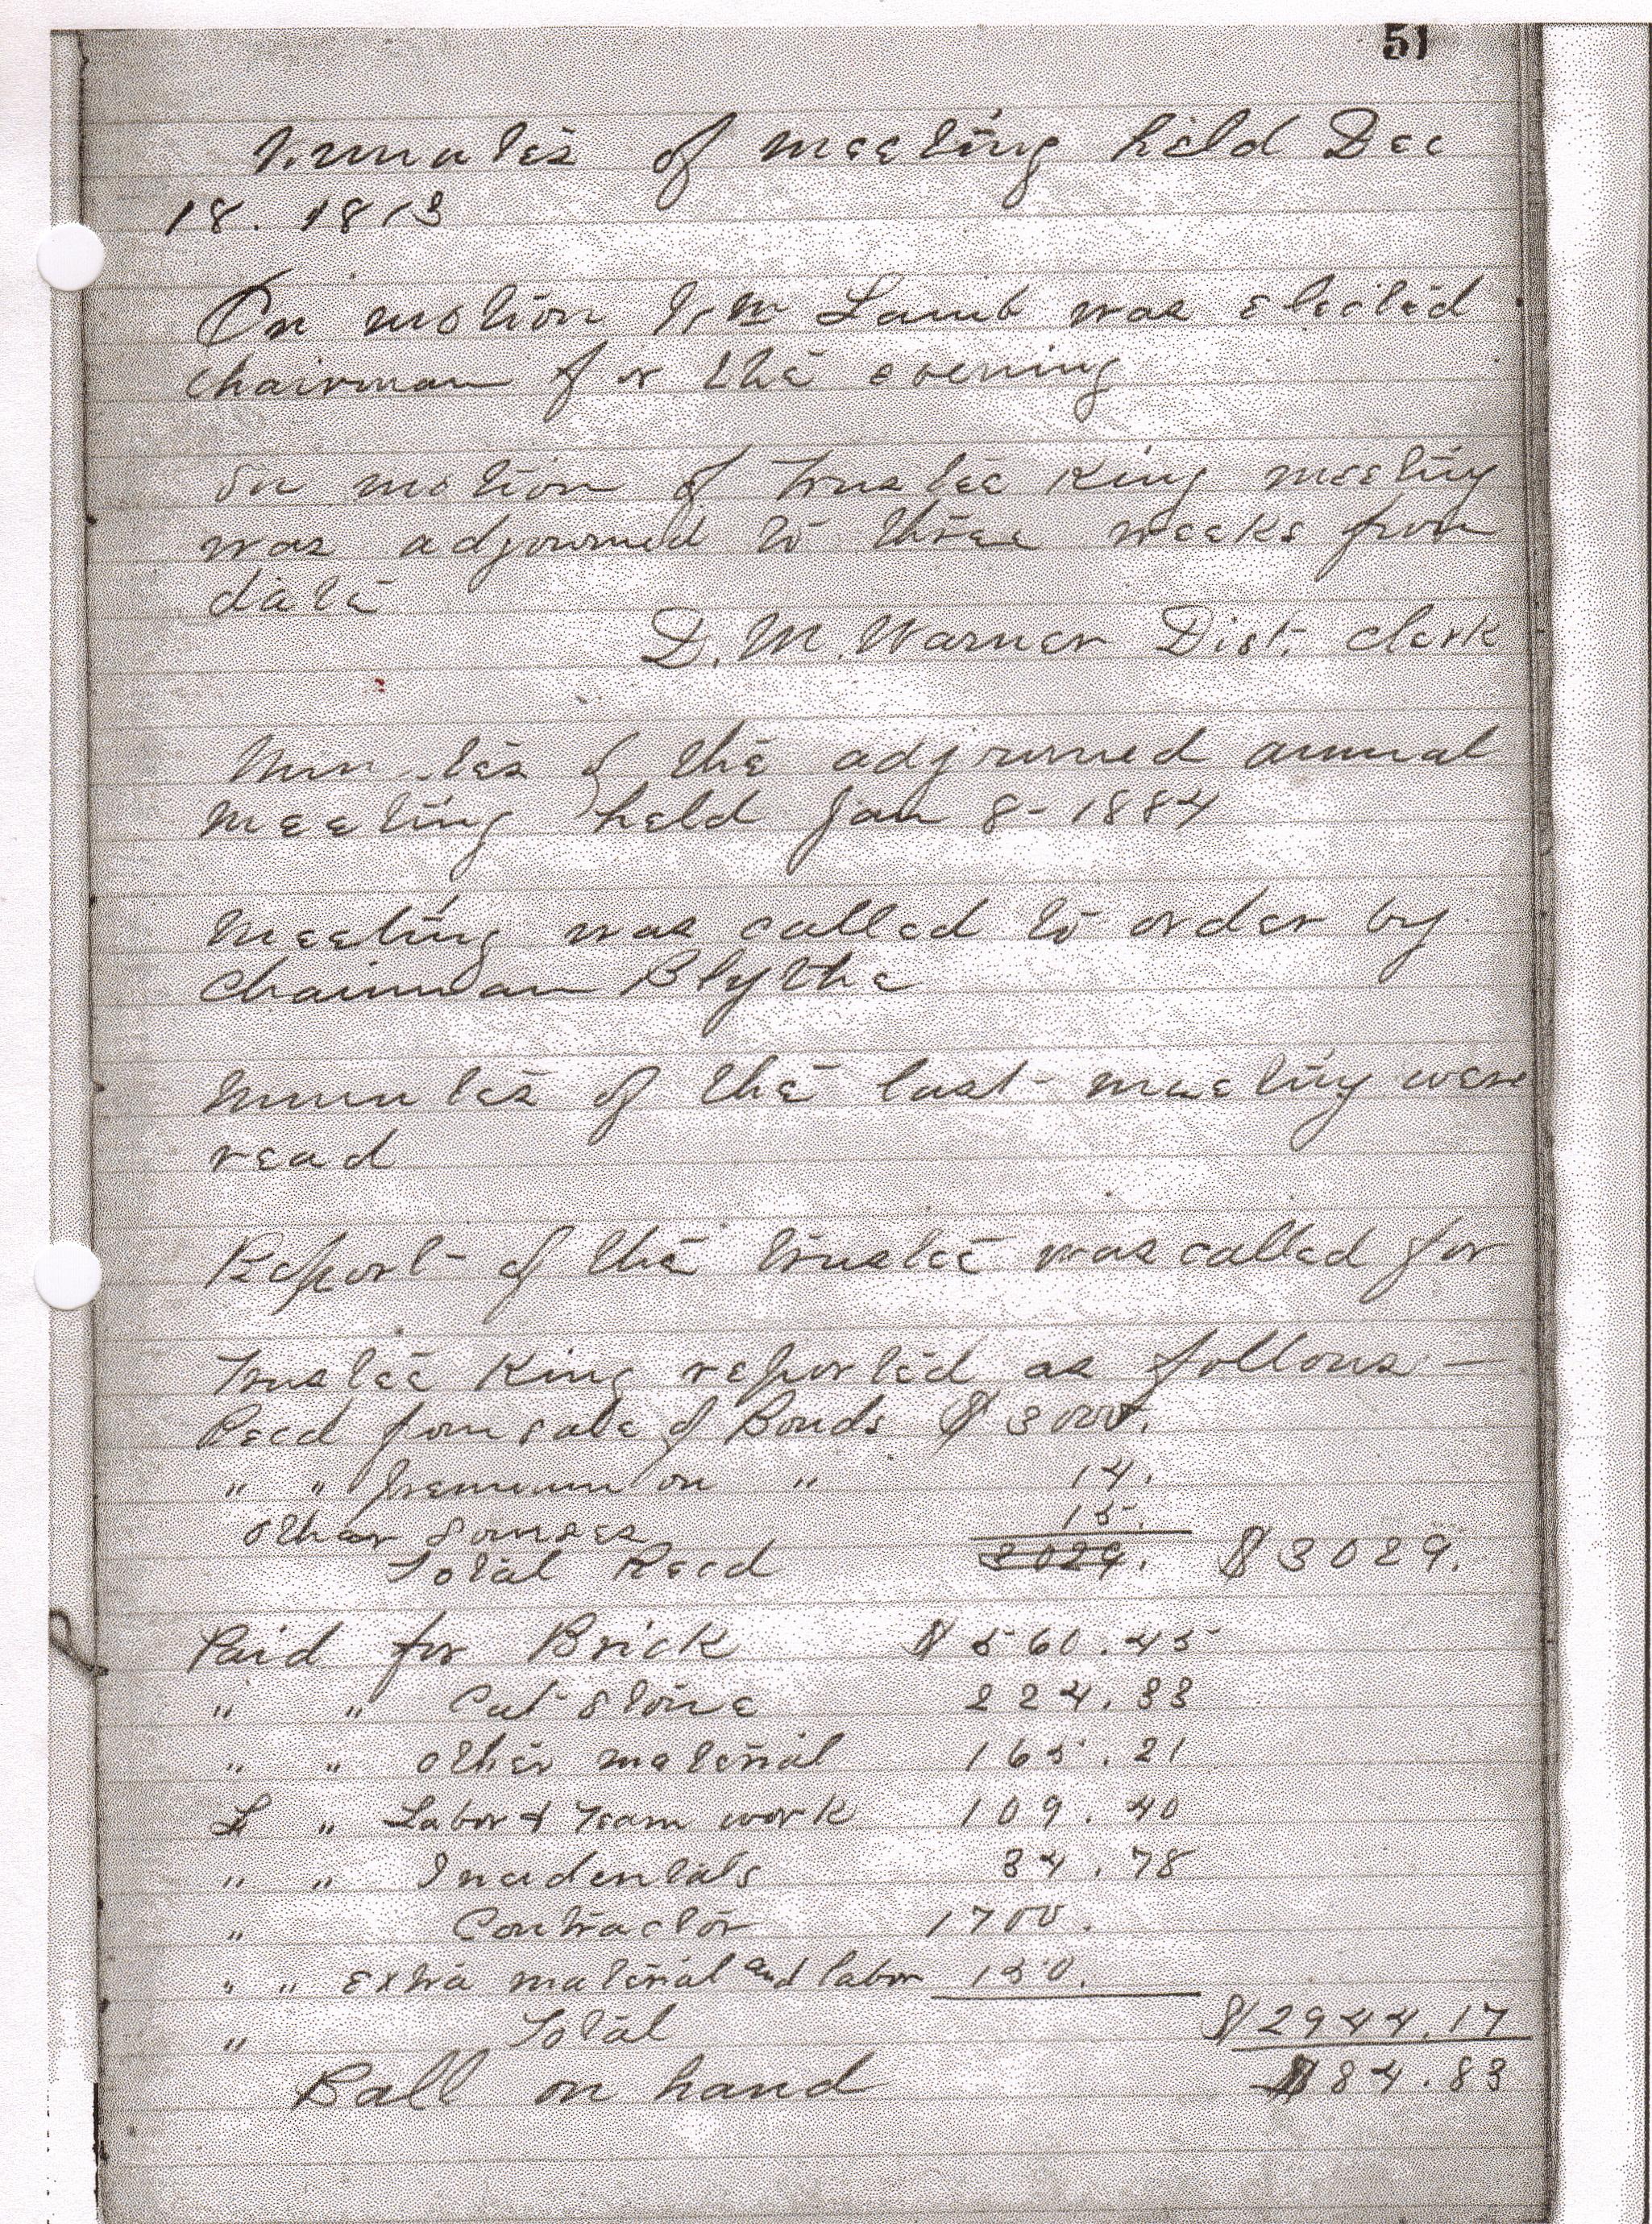 51
Minutes of meeting held Dec
18. 1813
On motion Wm Lamb was elected
chairman for the evening
On motion of Trustee King meeting
was adjourned to three weeks from
date
D. M. Warner Dist. clerk
Minutes of the adjourned annual
meeting held Jan 8 - 1884
Meeting was called to order by
chairman Blythe
Minutes of the last meeting were
read
Report of the trustee was called for
Trustee King reported as follows —
Recd from sale of Bonds $ 3000.
" " premium on " 14.
other sourses 15.
Total Recd 3029. $ 3029.
Paid for Brick $ 560.45
" " Cut stone 224.33
" " other material 165.21
" Labor & Team work 109.40
" " Incidentals 34.78
" Contractor 1700.
" " extra material and labor 150.
" Total $ 2944.17
Ball on hand $ 84.83